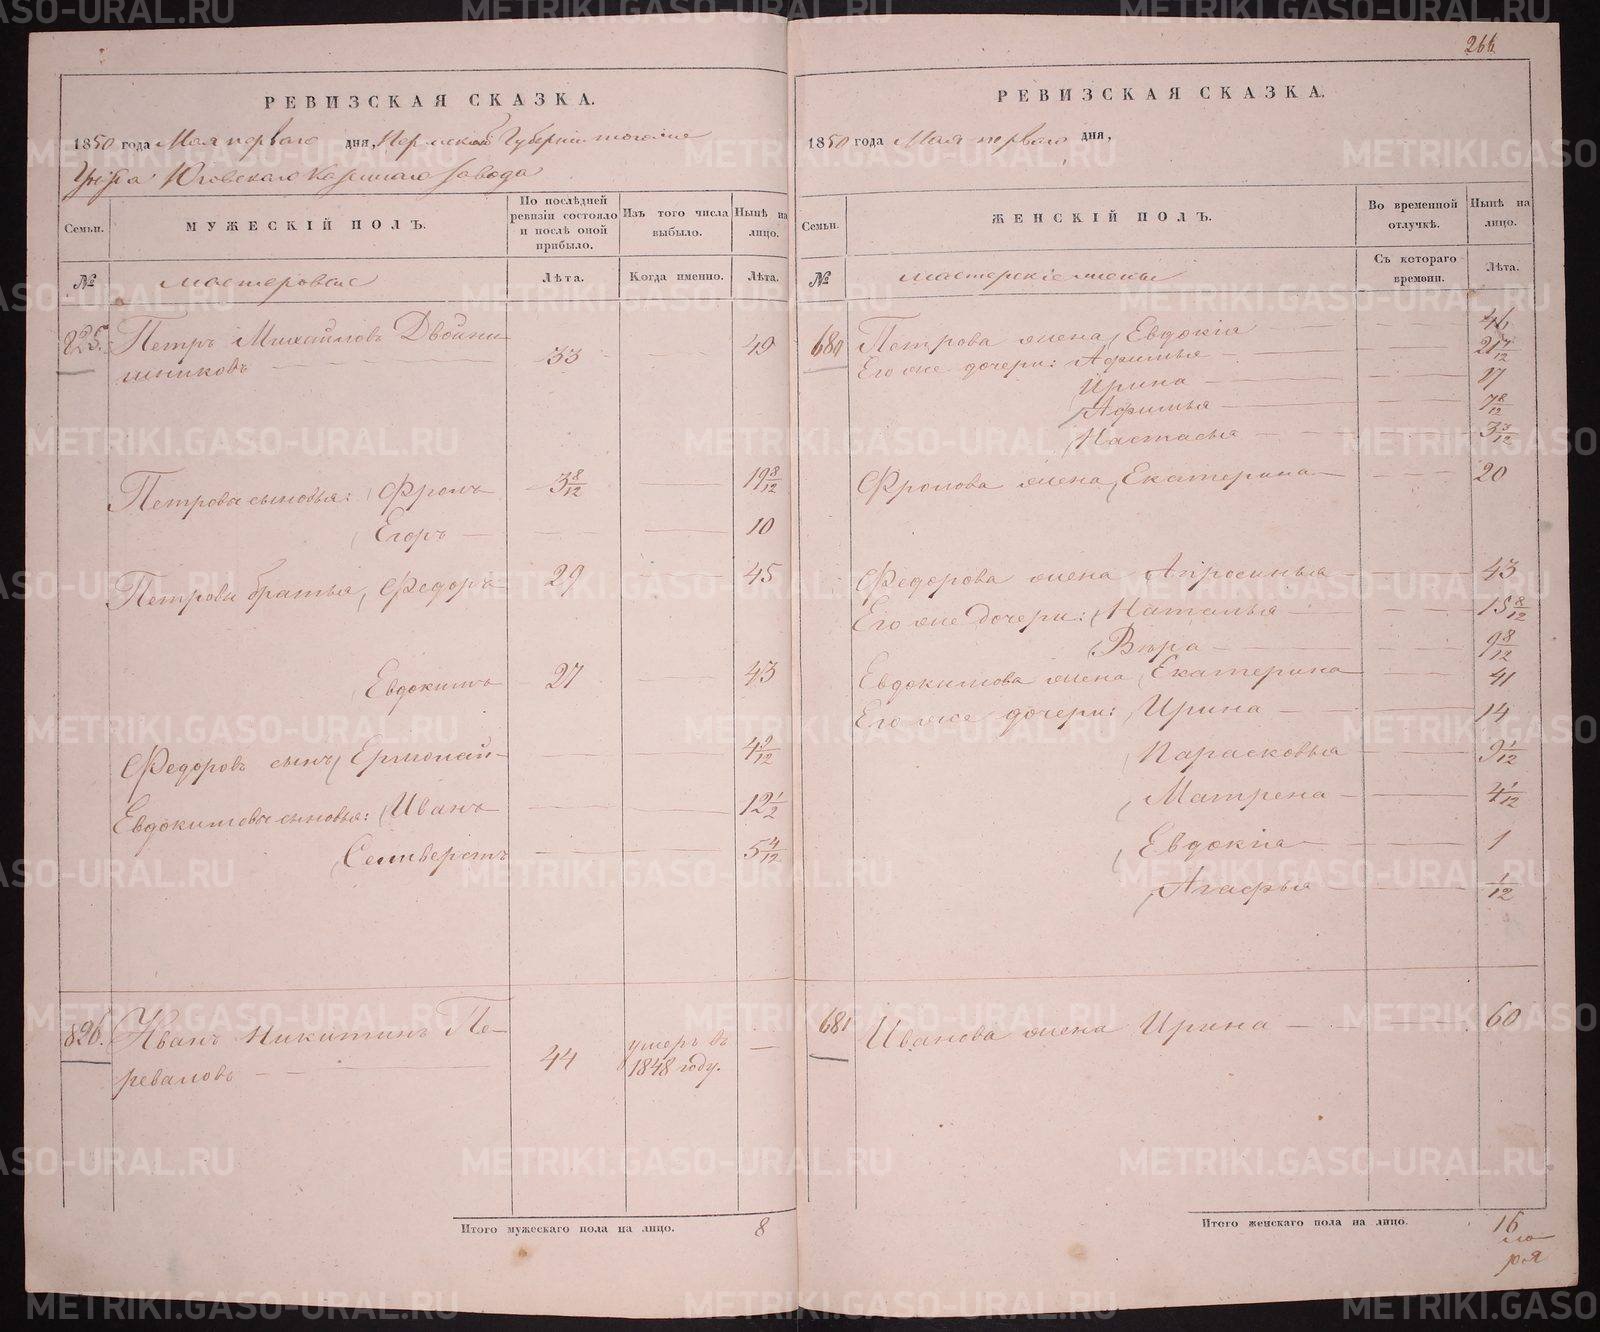 266
РЕВИЗСКАЯ СКАЗКА.
1850 года Мая перваго дня, Пермской Губернии тогоже
Уезда Юговскаго Казеннаго завода
Семьи.
МУЖЕСКІЙ ПОЛЪ.
По послѣдней ревизіи состояло и послѣ оной прибыло.
Изъ того числа выбыло.
Нынѣ на лицо.
№
мастеровые
Лѣта.
Когда именно.
Лѣта.
825. Петръ Михайловъ Двойни
шниковъ 33 49
Петровы сыновья: Фролъ 3 8/12 19 8/12
Егоръ 10
Петровы братья, Федоръ 29 45
Евдокимъ 27 43
Федоровъ сынъ Ермолай 4 9/12
Евдокимовы сыновья: Иванъ 12 1/2
Селиверстъ 5 4/12
826. Иванъ Никитинъ Пе-
реваловъ 44 умеръ въ
1848 году.
Итого мужескаго пола на лицо. 8
РЕВИЗСКАЯ СКАЗКА.
1850 года Мая перваго дня,
Семьи.
ЖЕНСКІЙ ПОЛЪ.
Во временной отлучкѣ.
Нынѣ на лицо.
№
мастерскіе жены
Съ котораго времени.
Лѣта.
680 Петрова жена, Евдокія 46
Его же дочери: Афимья 21 7/12
Ирина 17
Афимья 7 8/12
Настасья 3 3/12
Фролова жена, Екатерина 20
Федорова жена Апросинья 43
Его же дочери: Наталья 15 8/12
Вѣра 9 8/12
Евдокимова жена, Екатерина 41
Его же дочери: Ирина 14
Парасковья 9 1/12
Матрена 4 1/12
Евдокія 1
Агафья 1/12
681 Иванова жена Ирина 60
Итого женскаго пола на лицо. 16